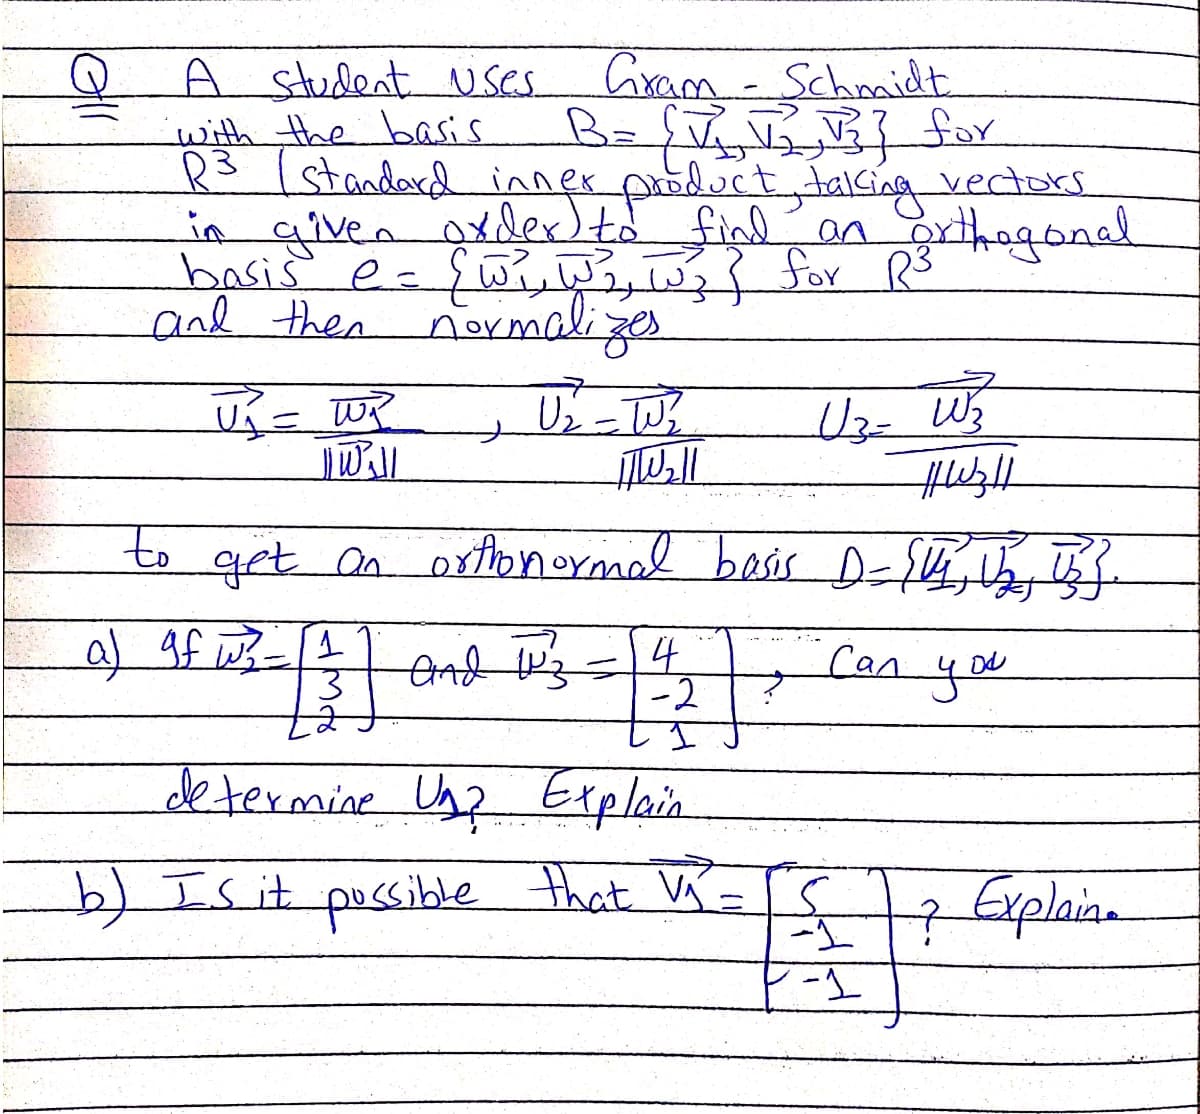 Q A student uses Gram - Schmidt
with the basis B = {V⃗1, V⃗2, V⃗3} for
R³ (standard inner product, taking vectors
in given order) to find an orthogonal
basis e = {W⃗1, W⃗2, W⃗3} for R³
and then normalizes
U⃗1 = W⃗1 / ||W⃗1|| , U⃗2 = W⃗2 / ||W2|| U3 = W⃗3 / ||W3||
to get an orthonormal basis D = {U⃗1, U⃗2, U⃗3}.
a) If W⃗2 = [1 3 2] and W⃗3 = [4 -2 1], Can you
determine U1? Explain
b) Is it possible that V⃗1 = [5 -1 -1] ? Explain.